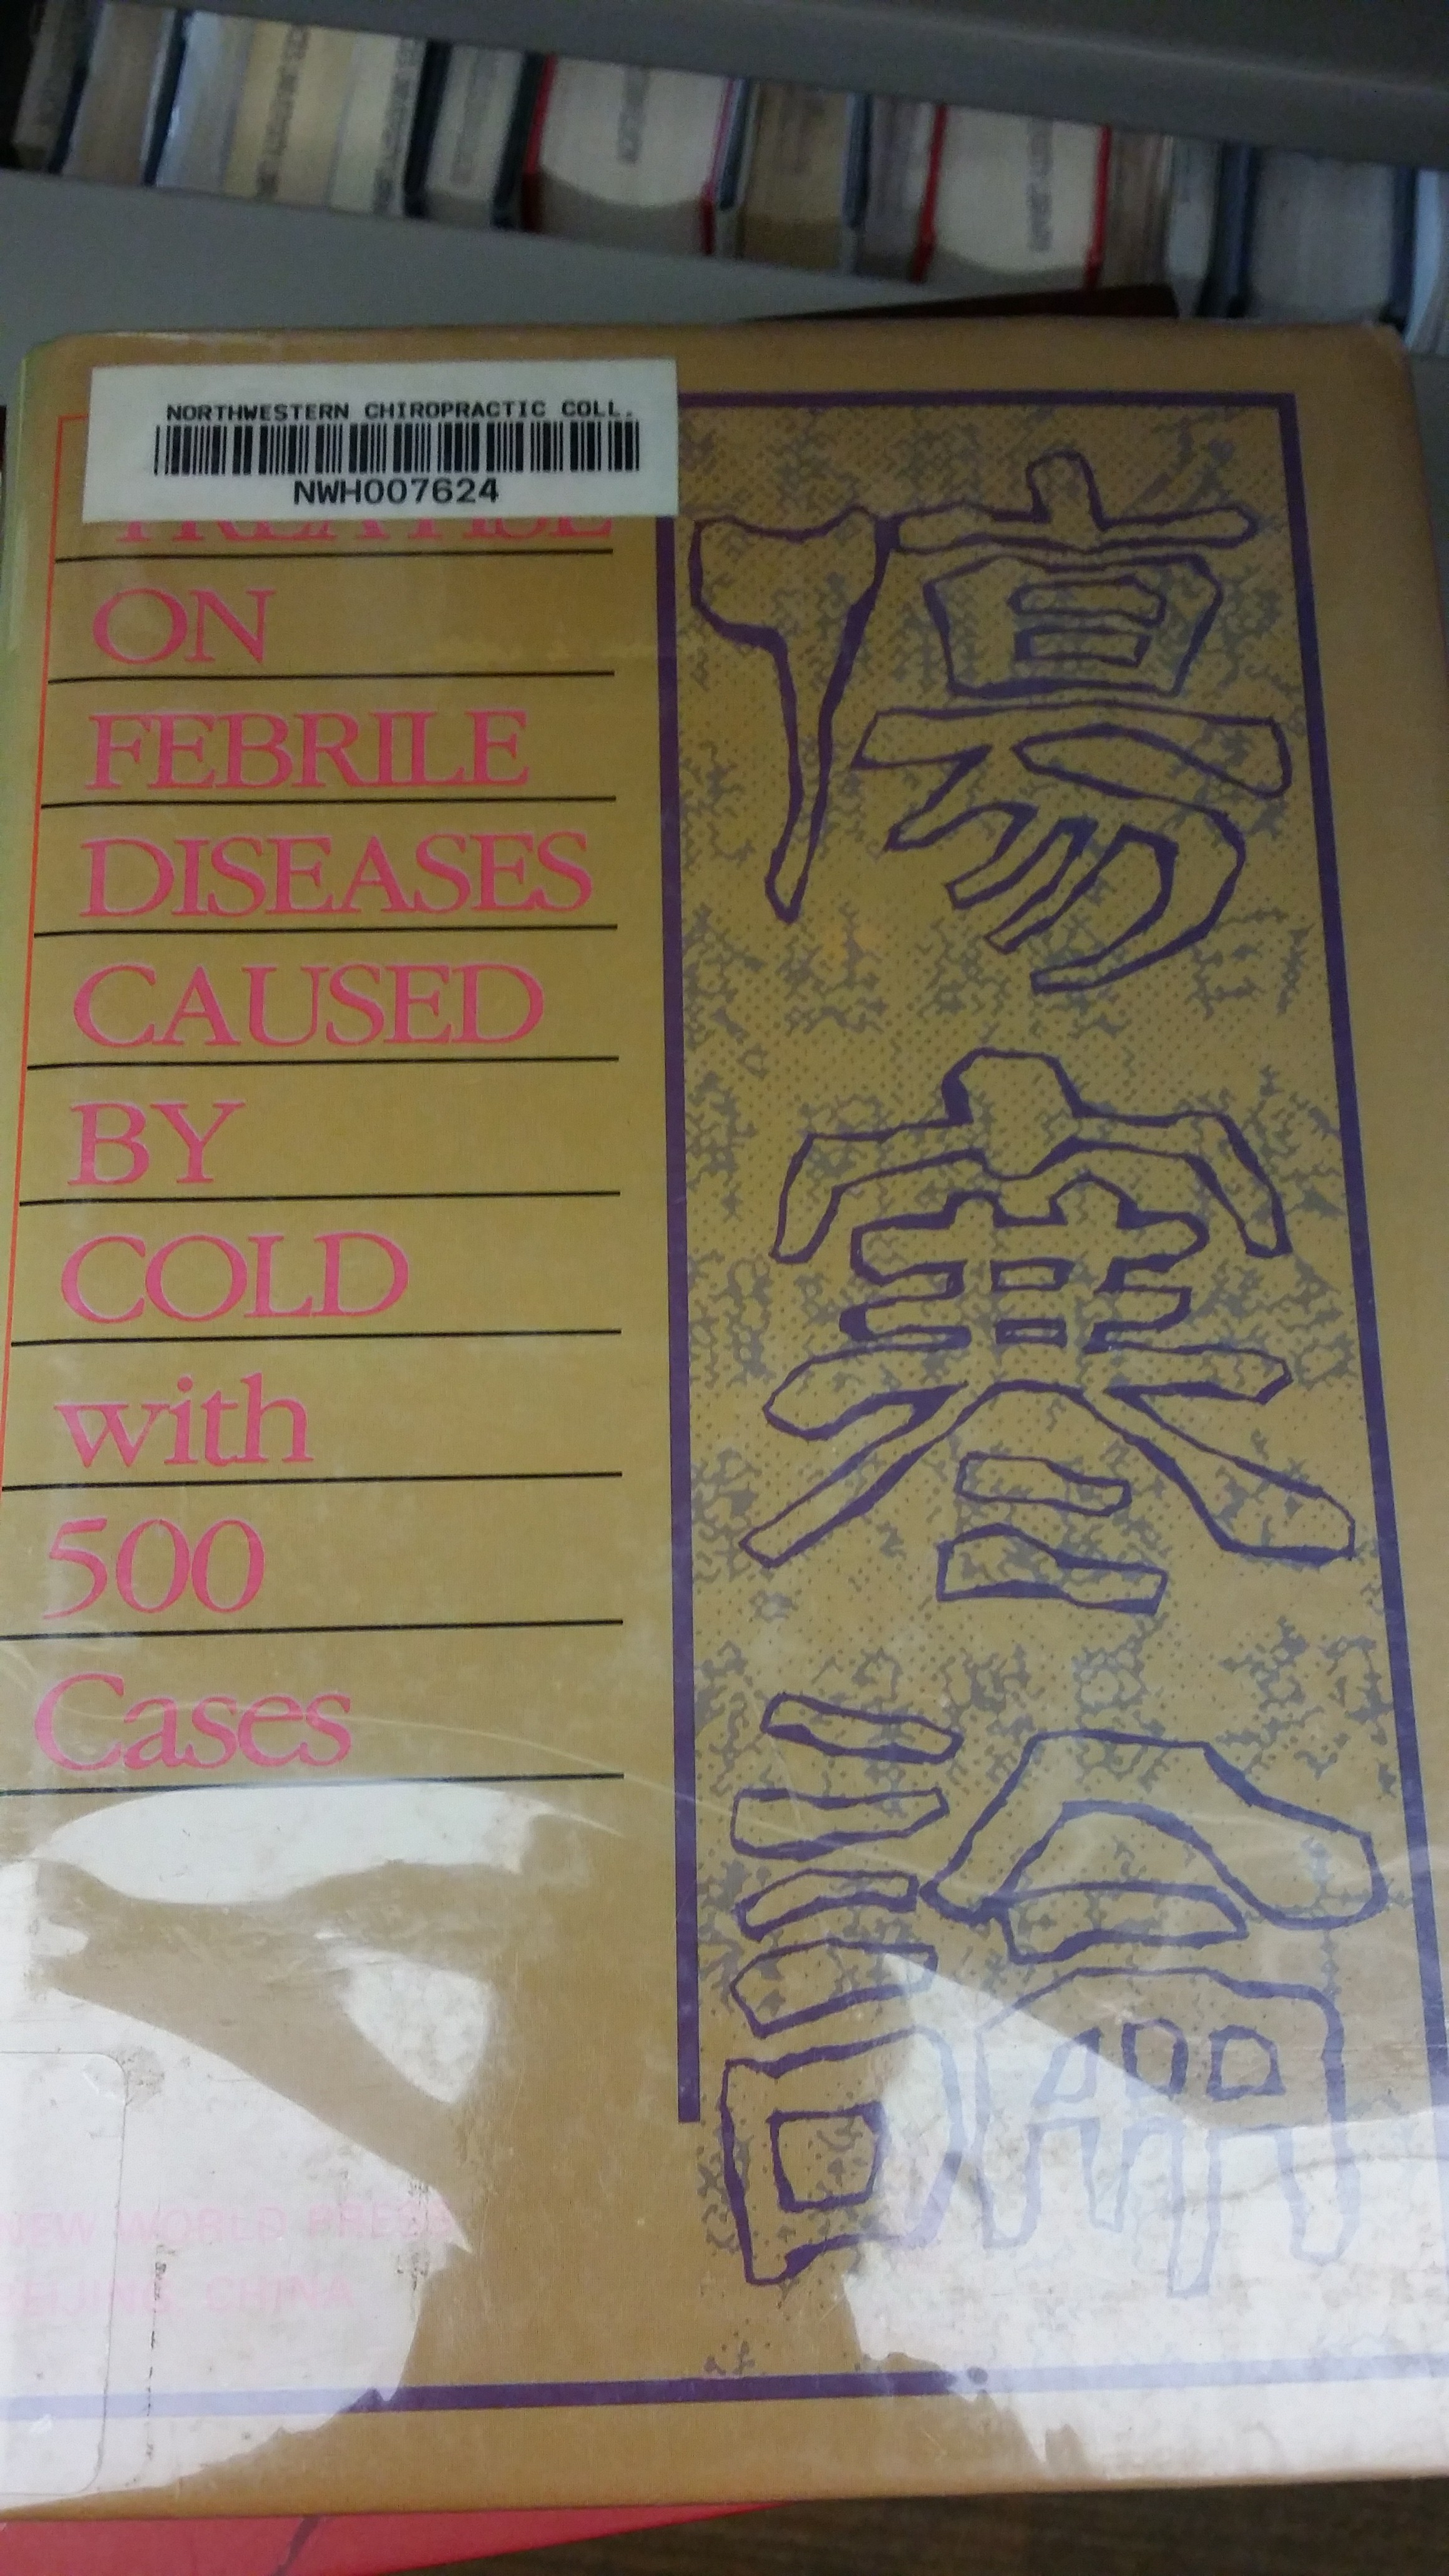 NORTHWESTERN CHIROPRACTIC COLL.
NWH007624
TREATISE
ON
FEBRILE
DISEASES
CAUSED
BY
COLD
with
500
Cases
傷
寒
論
NEW WORLD PRESS
CHINA